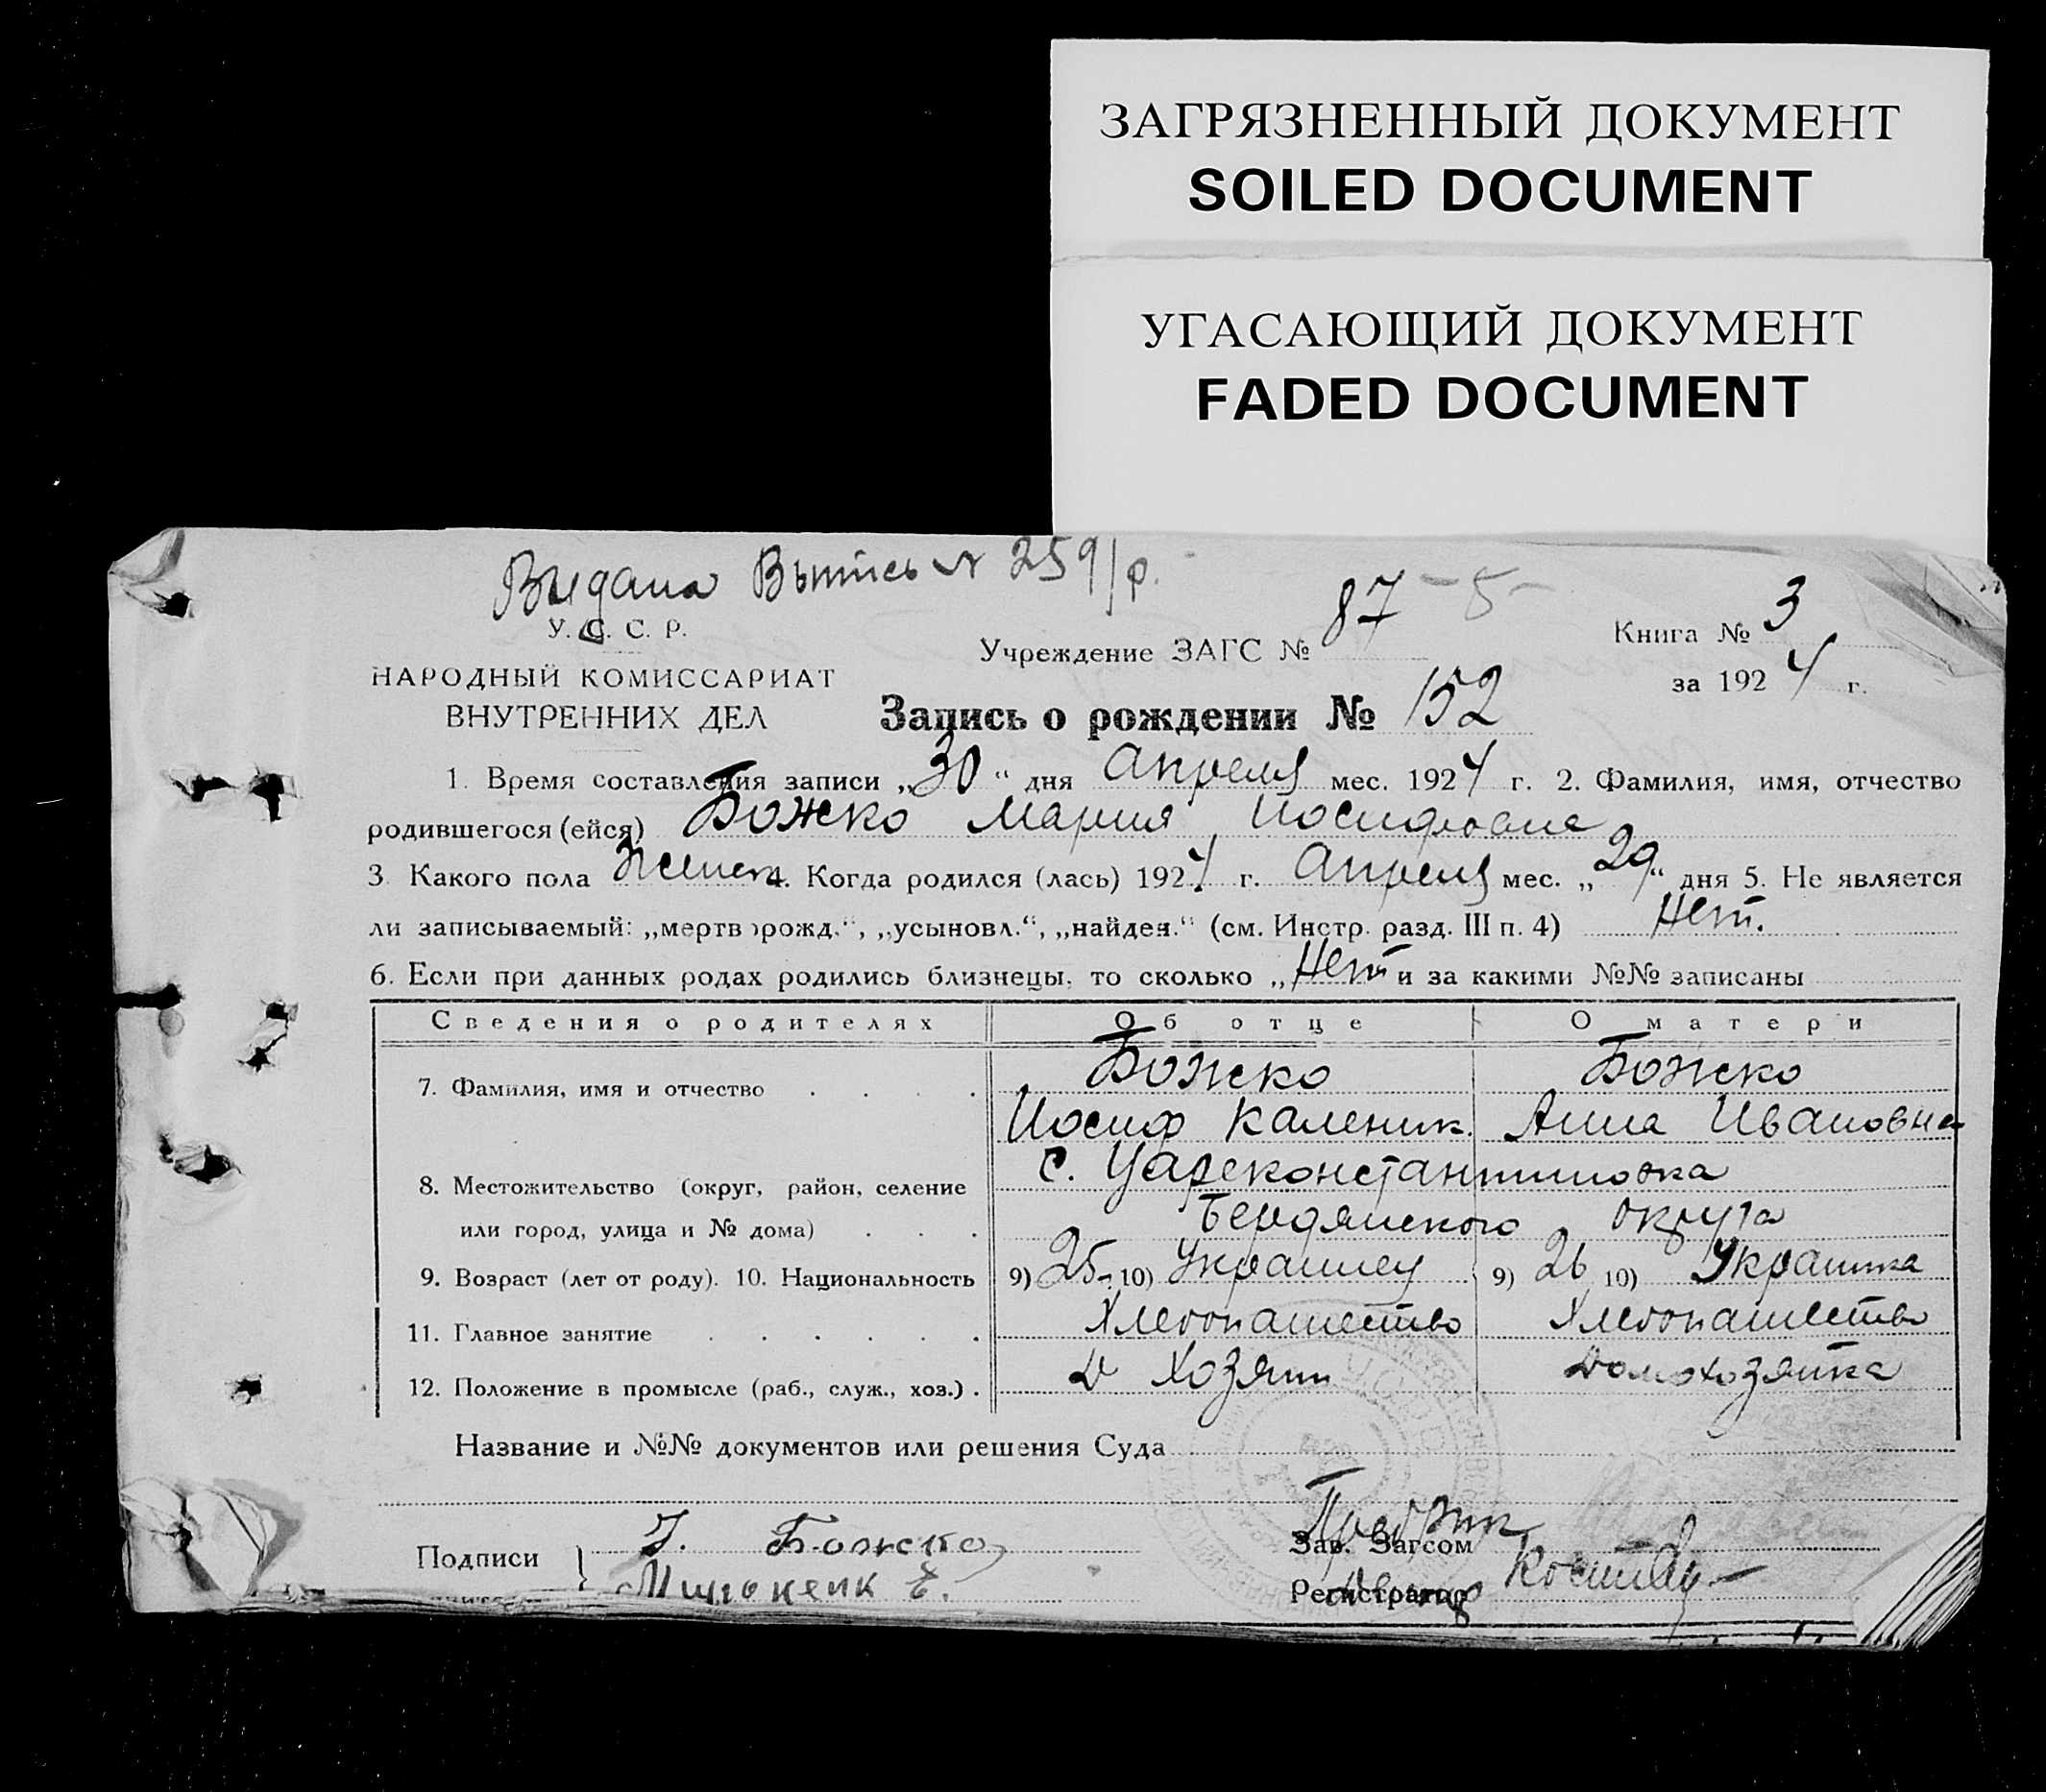 ЗАГРЯЗНЕННЫЙ ДОКУМЕНТ
SOILED DOCUMENT
УГАСАЮЩИЙ ДОКУМЕНТ
FADED DOCUMENT
Выдана Выпись № 259/р.
У. С. С. Р.
НАРОДНЫЙ КОМИССАРИАТ
ВНУТРЕННИХ ДЕЛ
Учреждение ЗАГС № 87 - 5 -
Книга № 3
за 1924 г.
Запись о рождении № 152
1. Время составления записи „30“ дня Апреля мес. 1924 г. 2. Фамилия, имя, отчество
родившегося (ейся) Божко Мария Иосифовна
3. Какого пола Женск 4. Когда родился (лась) 1924 г. Апреля мес. „29“ дня 5. Не является
ли записываемый: „мертворожд.“, „усыновл.“, „найден.“ (см. Инстр. разд. III п. 4) Нет.
6. Если при данных родах родились близнецы, то сколько „Нет“ и за какими №№ записаны
Сведения о родителях Об отце О матери
7. Фамилия, имя и отчество Божко Божко
Иосиф Каленик. Анна Ивановна
8. Местожительство (округ, район, селение с. Цареконстантиновка
или город, улица и № дома) Бердянского округа
9. Возраст (лет от роду). 10. Национальность 9) 25 10) Украинец 9) 26 10) Украинка
11. Главное занятие Хлебопашество Хлебопашество
12. Положение в промысле (раб., служ., хоз.) Д Хозяин Домохозяйка
Название и №№ документов или решения Суда
Подписи И. Божко
Зав. Загсом
Регистратор